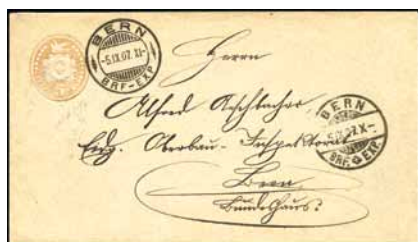 BERN
-5.IX.07. XI-
BRF-EXP.
Herrn
Alfred Aeschbacher
Eidg. Oberbau-Inspektorat
BERN
5.IX.07. X-
BRF. EXP.
Bern
Bundeshaus.